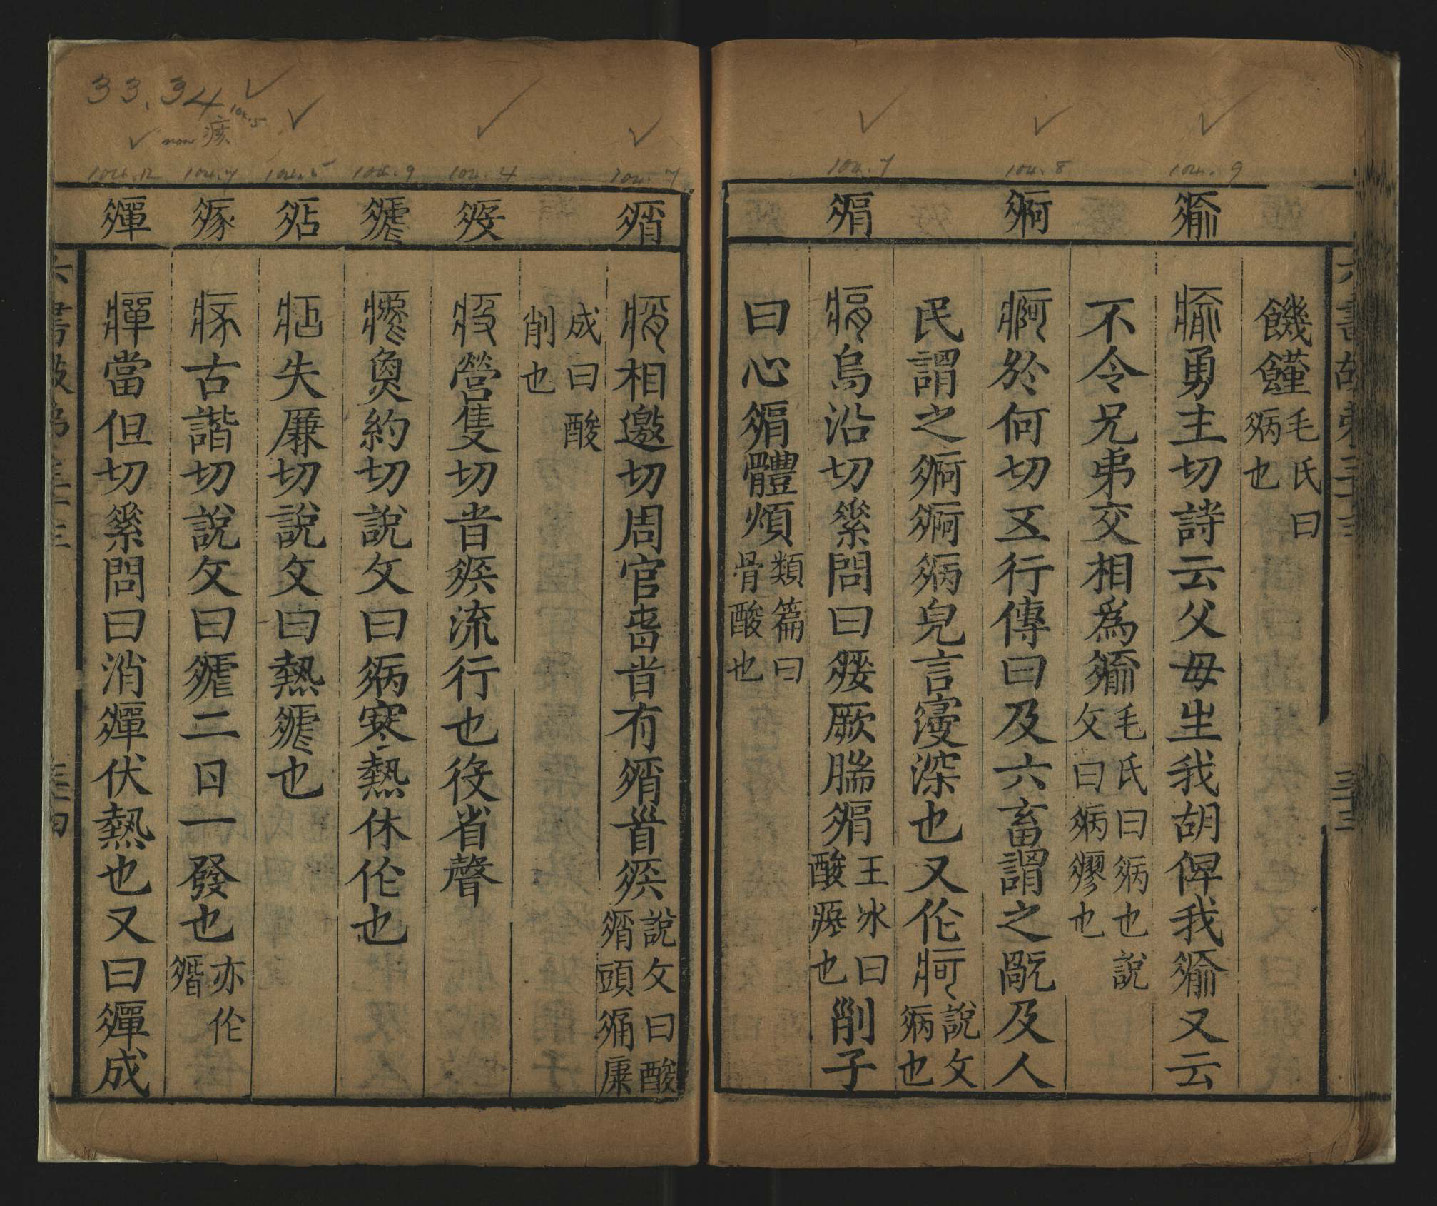 33,34
104.5
non 痎
104.12 104.7 104.5 104.9 104.4 104.7
104.7 104.8 104.9
瘉
痾
痟
饑饉毛氏曰
病也
瘉勇主切詩云父毋生我胡俾我瘉又云
不令兄弟交相爲瘉毛氏曰病也說
文曰病瘳也
痾於何切五行傳曰及六畜謂之旤及人
民謂之痾痾病皃言寖深也又作疴說文
病也
痟烏沿切絫問曰痿厥腨痟王冰曰
酸疼也
削子
曰心痟體煩類篇曰
骨酸也
痟
疫
瘧
痁
痎
癉
痟相邀切周官 旹有痟首疾說文曰酸
痟頭痛
成曰酸
削也
疫營隻切旹疾流行也役省聲
瘧魚約切說文曰病寒熱休作也
痁失廉切說文曰熱瘧也
痎古諧切說文曰瘧二日一發也亦作
㾬
癉當但切絫問曰消癉伏熱也又曰癉成
六書故弟三十三
三十三
三十四